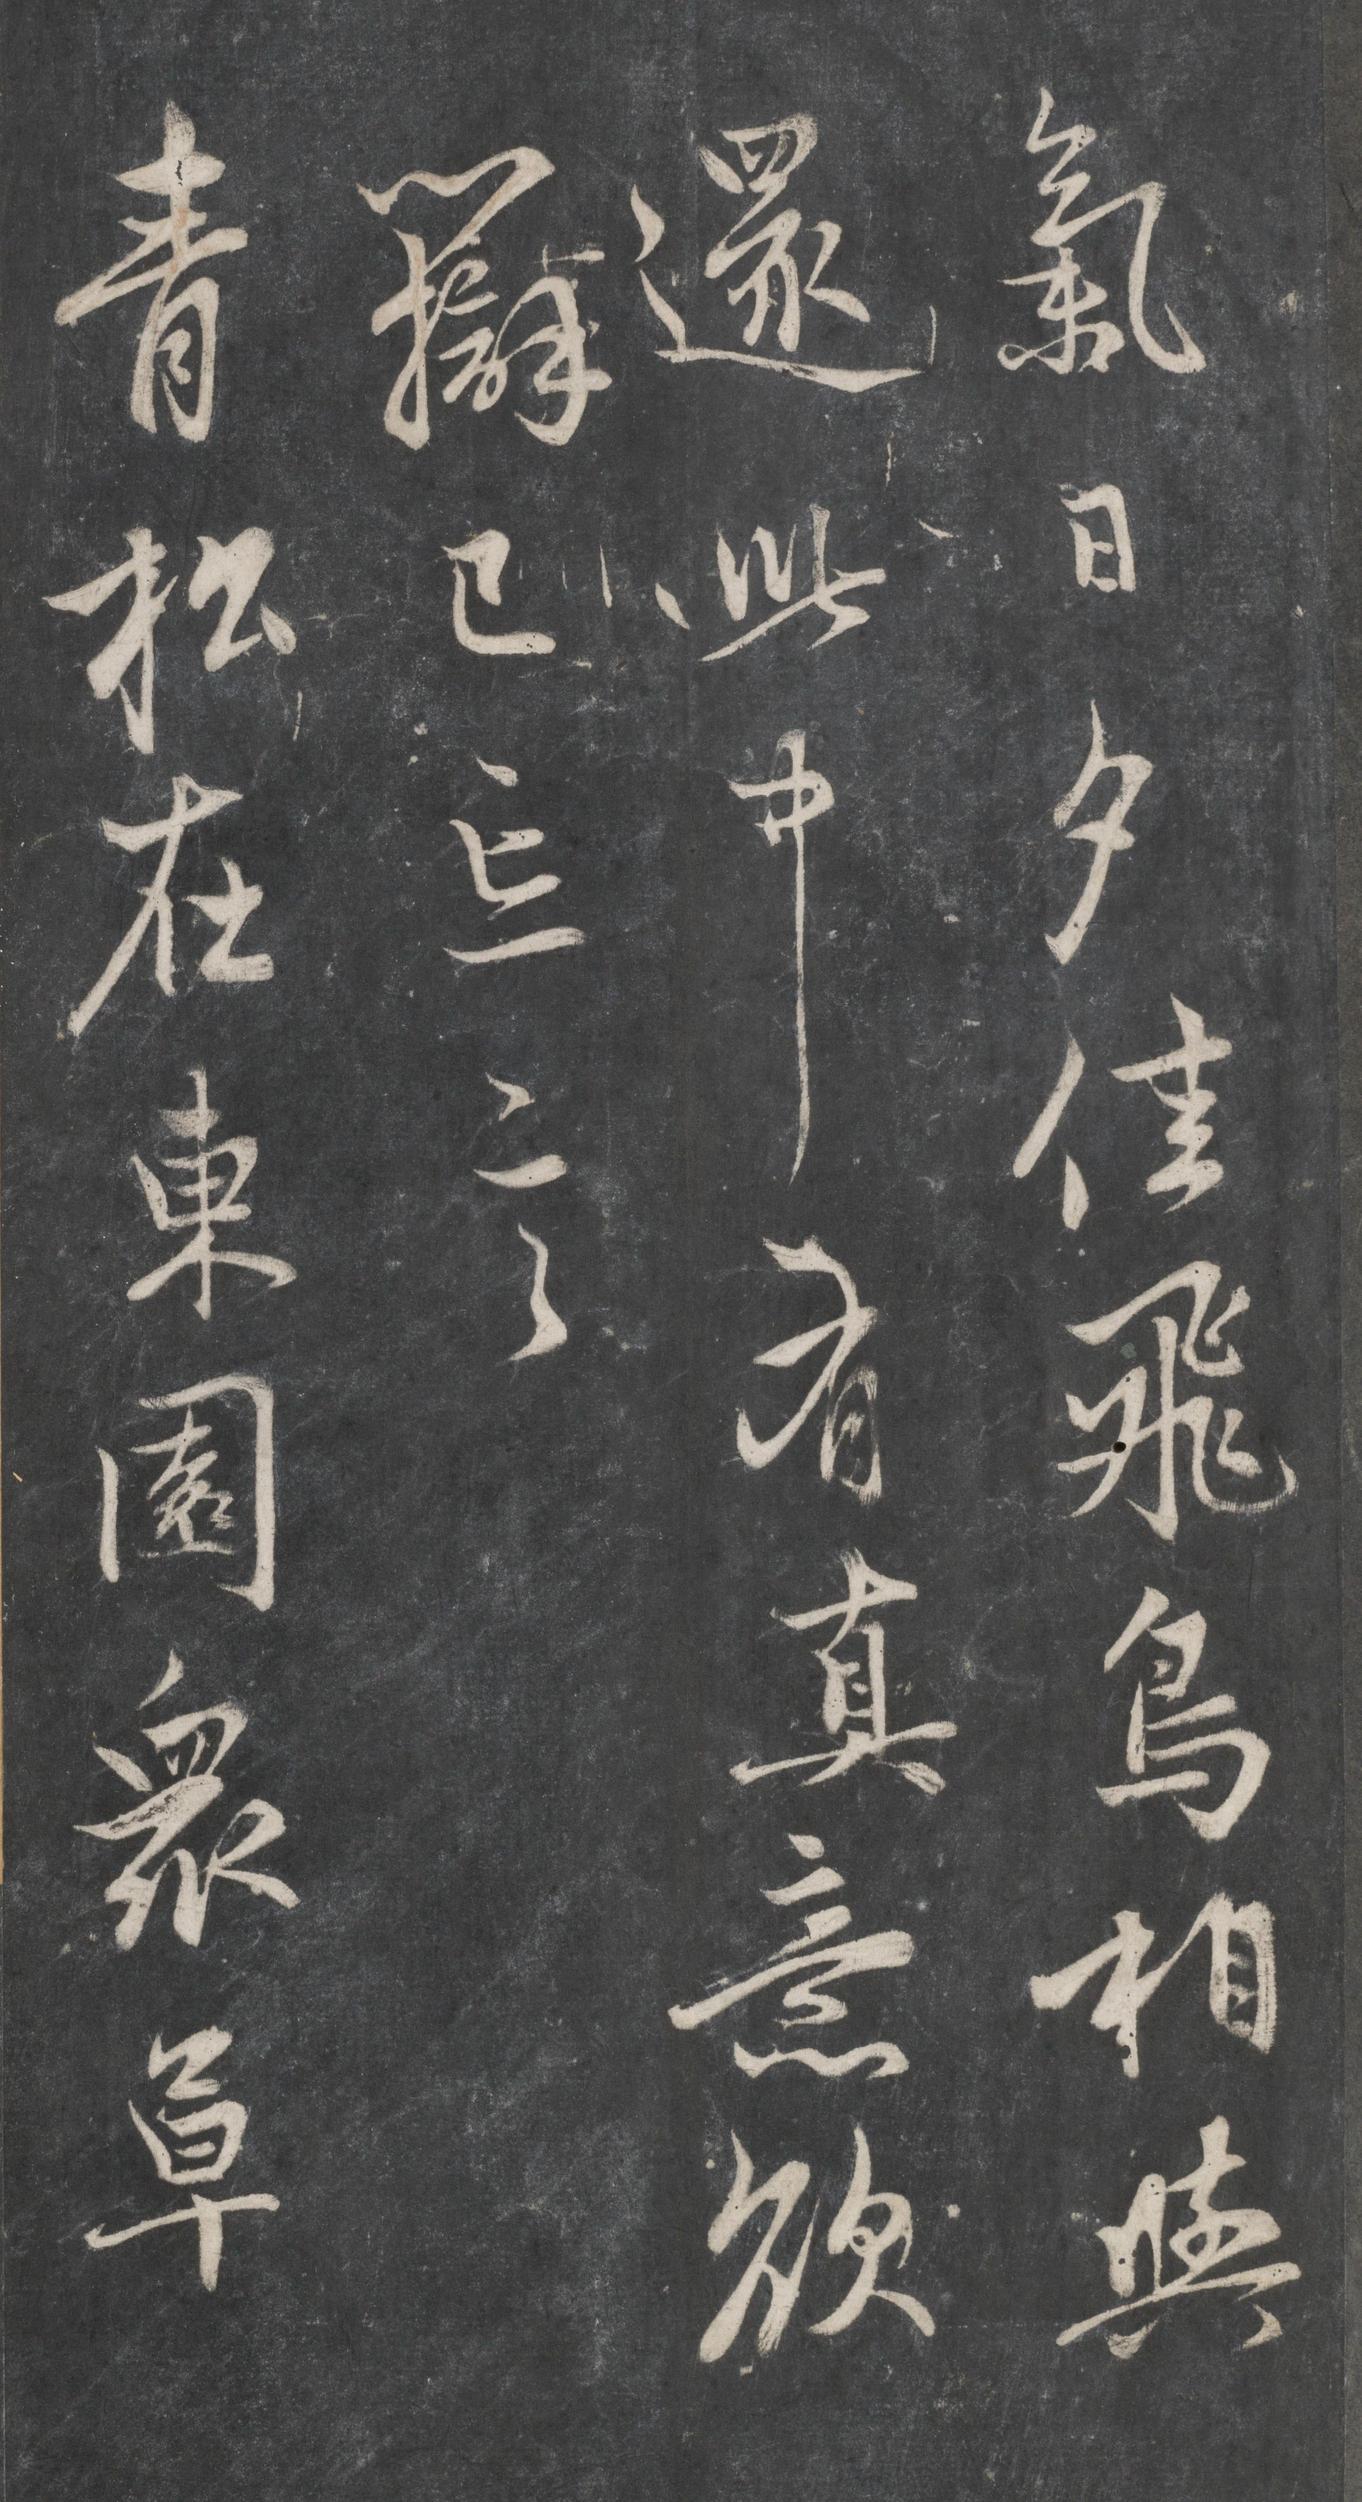 氣日夕佳飛鳥相與
還此中有真意欲
辯已忘言
青松在東園衆草